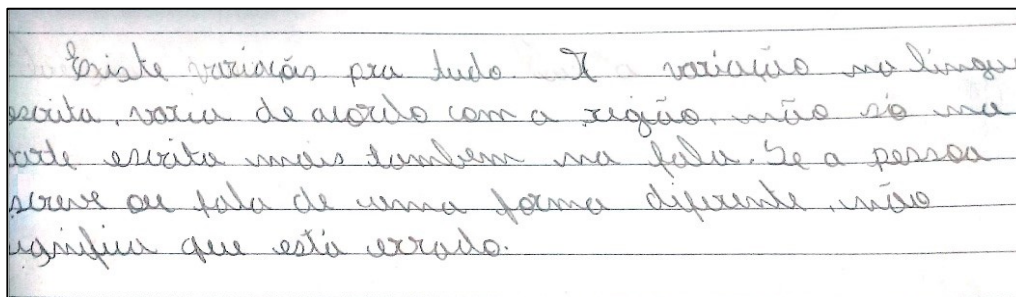 Existe variação pra tudo. A variação na língu
escrita, varia de acordo com a região, não só na
arte escrita mais tambem na fala. Se a pessoa
screve ou fala de uma forma diferente, não
ignifica que está errado.